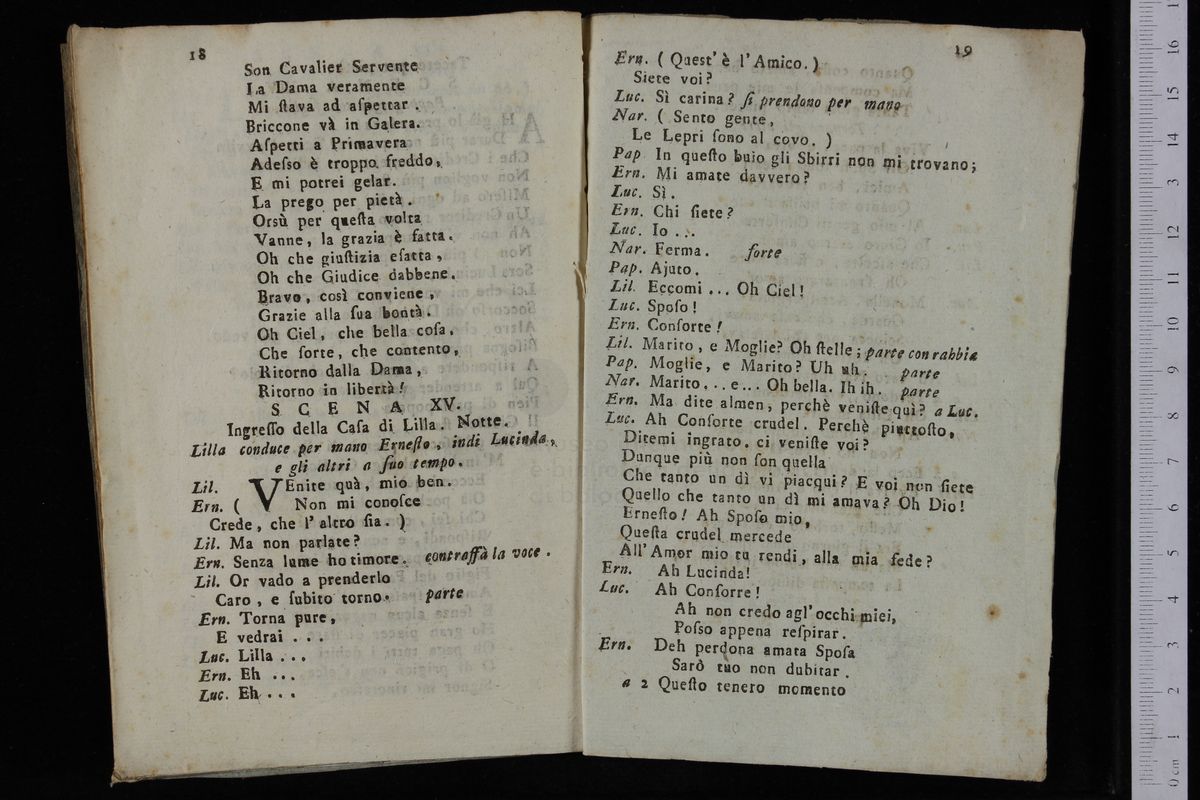 18
Son Cavalier Servente
La Dama veramente
Mi ſtava ad aſpettar .
Briccone và in Galera.
Aſpetti a Primavera
Adeſso è troppo freddo,
E mi potrei gelar.
La prego per pietà .
Orsù per queſta volta
Vanne, la grazia è fatta.
Oh che giuſtizia eſatta ,
Oh che Giudice dabbene.
Bravo, così conviene ,
Grazie alla ſua bontà.
Oh Ciel, che bella coſa,
Che ſorte, che contento,
Ritorno dalla Dama,
Ritorno in libertà!
SCENA XV.
Ingreſſo della Caſa di Lilla. Notte.
Lilla conduce per mano Erneſto , indi Lucinda,
e gli altri a ſuo tempo.
Lil. VEnite quà, mio ben.
Ern. ( Non mi conoſce
Crede, che l' altro ſia. )
Lil. Ma non parlate?
Ern. Senza lume ho timore. contraffà la voce .
Lil. Or vado a prenderlo
Caro , e ſubito torno. parte
Ern. Torna pure,
E vedrai ...
Luc. Lilla ...
Ern. Eh ...
Luc. Eh ...
19
Ern. ( Quest' è l'Amico. )
Siete voi?
Luc. Sì carina? ſi prendono per mano
Nar. ( Sento gente,
Le Lepri ſono al covo. )
Pap In queſto buio gli Sbirri non mi trovano;
Ern. Mi amate davvero?
Luc. Sì.
Ern. Chi ſiete?
Luc. Io ...
Nar. Ferma. forte
Pap. Ajuto.
Lil. Eccomi ... Oh Ciel!
Luc. Spoſo!
Ern. Conſorte!
Lil. Marito, e Moglie? Oh ſtelle; parte con rabbia
Pap. Moglie, e Marito? Uh uh. parte
Nar. Marito... e... Oh bella. Ih ih. parte
Ern. Ma dite almen, perchè veniſte quì? a Luc.
Luc. Ah Conſorte crudel. Perchè piuttoſto,
Ditemi ingrato, ci veniſte voi?
Dunque più non ſon quella
Che tanto un dì vi piacqui? E voi non ſiete
Quello che tanto un dì mi amava? Oh Dio!
Erneſto! Ah Spoſo mio,
Queſta crudel mercede
All'Amor mio tu rendi, alla mia fede?
Ern. Ah Lucinda!
Luc. Ah Conſorre!
Ah non credo agl'occhi miei,
Poſso appena reſpirar.
Ern. Deh perdona amata Spoſa
Sarò tuo non dubitar.
a 2 Queſto tenero momento